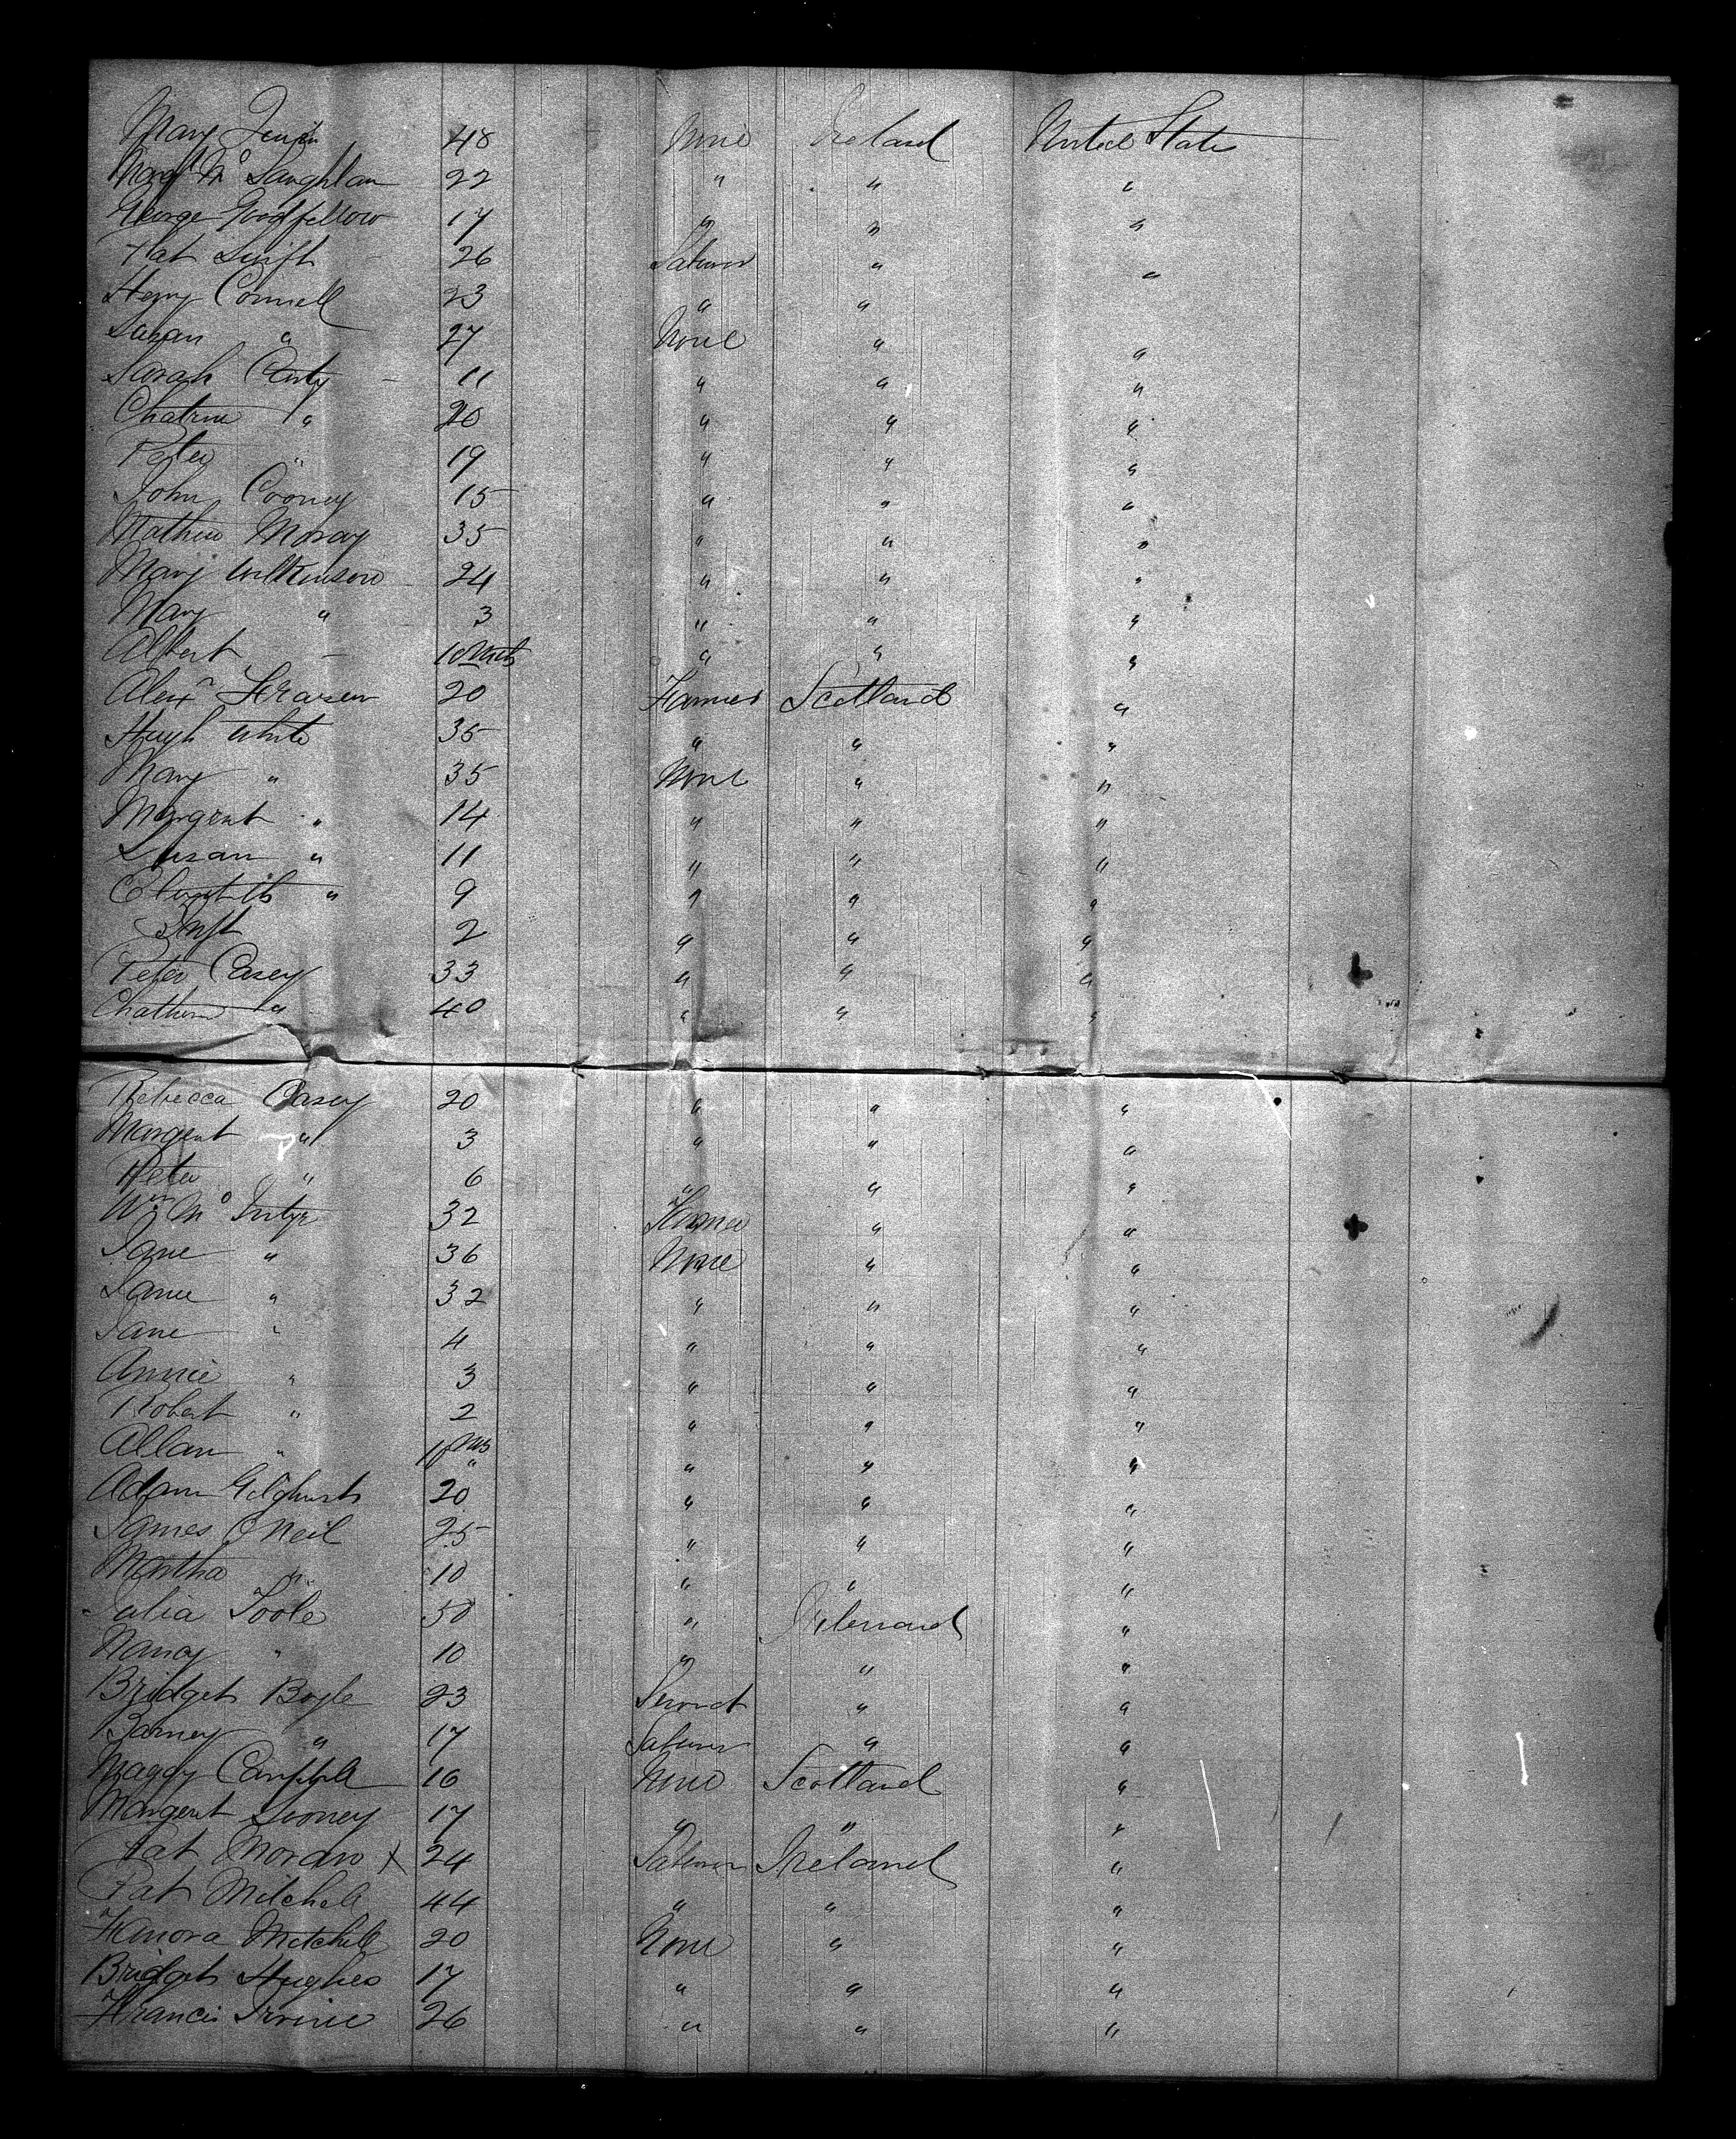 Mary 48 None Ireland United States
Marg^t Mc Laughlan 22 " " "
George Goodfellow 17 " " "
Pat Swift 26 Laburer " "
Henry Connell 23 " "
Susan " 27 None " "
Sarah Carty 11 " " "
Chatrine " 20 " " "
Peter " 19 " " "
John Cooney 15 " " "
Mathew Moray 35 " " "
Mary Wilkinson 24 " " "
Mary " 3 " " "
Albert 10 Mths " " "
Alex^r Frasier 20 Farmer Scotland "
Hugh White 35 " " "
Mary " 35 None " "
Margret " 14 " " "
Susan " 11 " " "
Elizabeth " 9 " " "
Inft 2 " " "
Peter Casey 33 " " "
Chathrin " 40 " " "
Rebecca Casey 20 " " "
Margret " 3 " " "
Peter " 6 " " "
Wm Mc Intyr 32 Farmer " "
Jane " 36 None " "
" 32 " " "
Jane " 4 " " "
Annie " 3 " " "
Robert " 2 " " "
Allan " 10 Ms " " "
Adam Gilghrist 20 " " "
James O Neil 25 " " "
Martha " 10 " " "
Julia Toole 50 " "
Nancy " 10 " " "
Bridget Boyle 23 Servant " "
Barney " 17 Laburer " "
Maggy Campbell 16 None Scotland "
Margret Looney 17 " " "
Pat Moran X 24 Laburer Ireland "
Pat Mitchell 44 " " "
Hanora Mitchell 20 None " "
Bridget Hughes 17 " " "
Francis Irvine 26 " " "